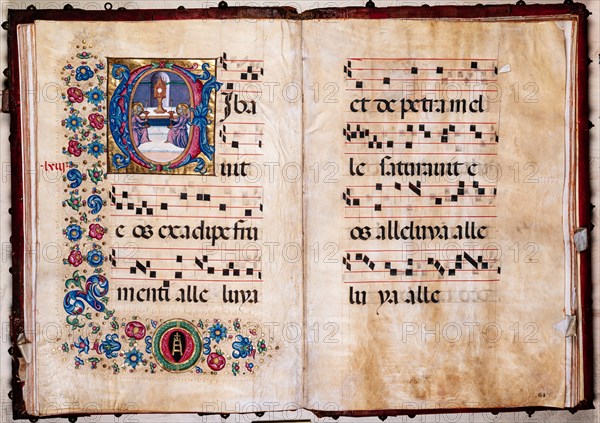 Ciba
lxvii
uit
e os ex adipe fru
menti alle luya
et de petra mel
le saturauit e
os alleluya alle
lu ya alle